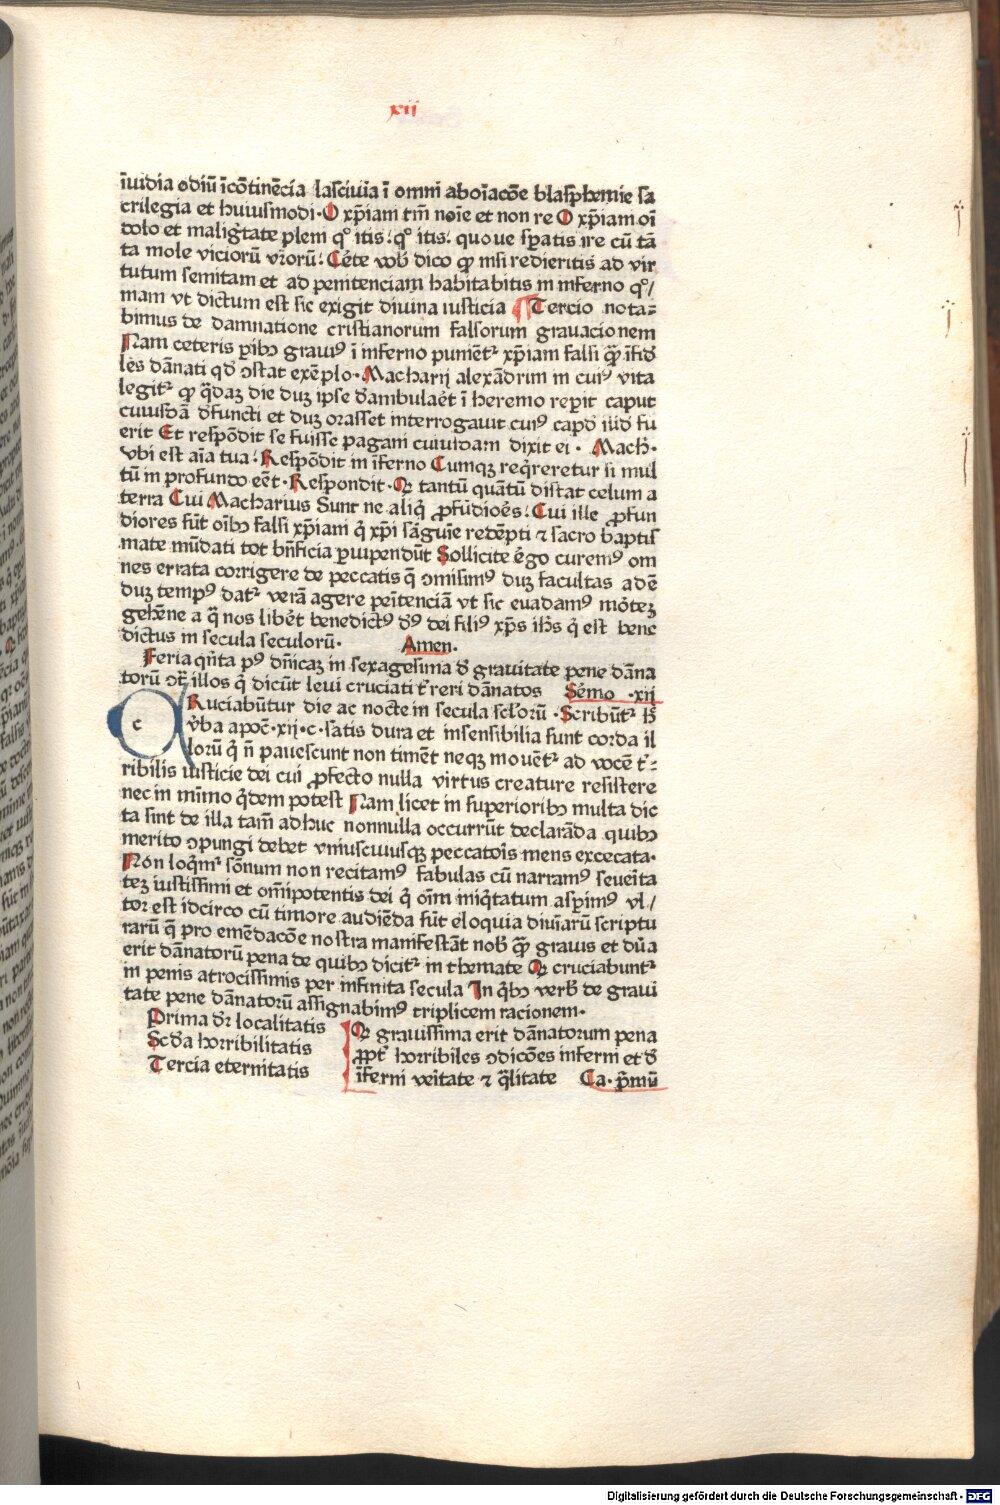 xii
īuidia odiū īcōtinēcia lasciuia ī omni aboīacōe blasphemie sa
crilegia et huiusmodi· O xp̄iam tm̄ noīe et non re O xp̄iam oī
dolo et maliḡtate plem qº itis! qº itis! quo ue sp̄atis ire cū tā
ta mole viciorū vr̄orū! Cēte vob̄ dico ꝙ nisi redieritis ad vir
tutum semitam et ad penitenciam habitabitis in inferno qº/
niam vt dictum est sic exigit diuina iusticia ¶ Tercio nota⸗
bimus de damnatione cristianorum falsorum grauacionem
Nam ceteris ꝑibꝫ grauiꝰ ī inferno punient᷑ xp̄iam falsi ꝙ̄ īfid̄
les dānati qd̄ ↄstat exēplo· Macharij alexādrim in cuiꝰ vita
legit᷑ ꝙ q̄daꝫ die duꝫ ipse d̄ambulaēt ī heremo reꝑit caput
cuiusdā d̄functi et duꝫ orasset interrogauit cuiꝰ capd̄ illd̄ fu
erit Et respōdit se fuisse pagani cuiuidam dixit ei · Mach·
vbi est aīa tua! Respōdit in īferno Cumqꝫ req̄reretur si mul
tū in profundo eēt· Respondit· Ꝙ tantū quātū distat celum a
terra Cui Macharius Sunt ne aliq̄ ꝓfūdioēs! Cui ille ꝓfun
diores sūt oībꝫ falsi xp̄iani q̄ xp̄i sāguīe redēpti ⁊ sacro baptis
mate mūdati tot bn̄ficia ꝑuipendūt Sollicite ēgo curemꝰ om
nes errata corrigere de peccatis q̄ ↄmisimꝰ duꝫ facultas adē
duꝫ tempꝰ dat᷑ verā agere penitenciā vt sic euadamꝰ mōteꝫ
gehēne a q̄ nos libēt benedictꝰ dꝰ dei filiꝰ xp̄s ih̄s q̄ est bene
dictus in secula seculorū· Amen·
Feria qn̄ta pꝰ dn̄icaꝫ in sexagesima d̄ grauitate pene dāna
torū ↄtᷓ illos q̄ dicūt leui cruciati t̄reri dānatos Sēmo ·xij
c Ruciabūtur die ac nocte in secula sc̄lorū · Scribūt᷑ h̄
v̄ba apoc̄·xij·c· satis dura et insensibilia sunt corda il
lorū q̄ n̄ pauescunt non timēt neqꝫ mouēt᷑ ad vocē t̄⸗
ribilis iusticie dei cui ꝓfecto nulla virtus creature resistere
nec in mīmo q̄dem potest Nam licet in superioribꝫ multa dic
ta sint de illa tam̄ adhuc nonnulla occurrūt declarāda quibꝫ
merito ↄpungi debet vniuscuiusqꝫ peccatoīs mens excecata·
Non loq̄mᷣ sōnum non recitamꝰ fabulas cū narramꝰ seueīta
teꝫ iustissimi et om̄ipotentis dei q̄ oīm iniq̄tatum asꝑimꝰ vl/
tor est idcirco cū timore audiēda sūt eloquia diuīarū scriptu
rarū q̄ pro emēdacōe nostra manifestāt nob̄ ꝙ̄ grauis et dūa
erit dānatorū pena de quibꝫ dicit᷑ in themate Ꝙ cruciabunt᷑
in penis atrocissimis per infinita secula In q̄bꝫ verb̄ de graui
tate pene dānatorū assignabimꝰ triplicem racionem·
Prima dr̄ localitatis
Scd̄a horribilitatis
Tercia eternitatis
Ꝙ grauissima erit dānatorum pena
ꝓpt̄ horribiles ↄdicōes inferni et d̄
īferni veītate ⁊ q̄litate Ca· p̄mū
Digitalisierung gefördert durch die Deutsche Forschungsgemeinschaft - DFG